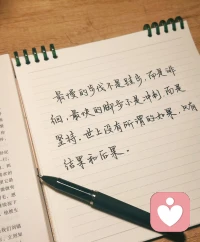 最慢的步伐不是跬步，而是徘
徊，最快的脚步不是冲刺，而是
坚持。世上没有所谓的如果，只有
结果和后果。